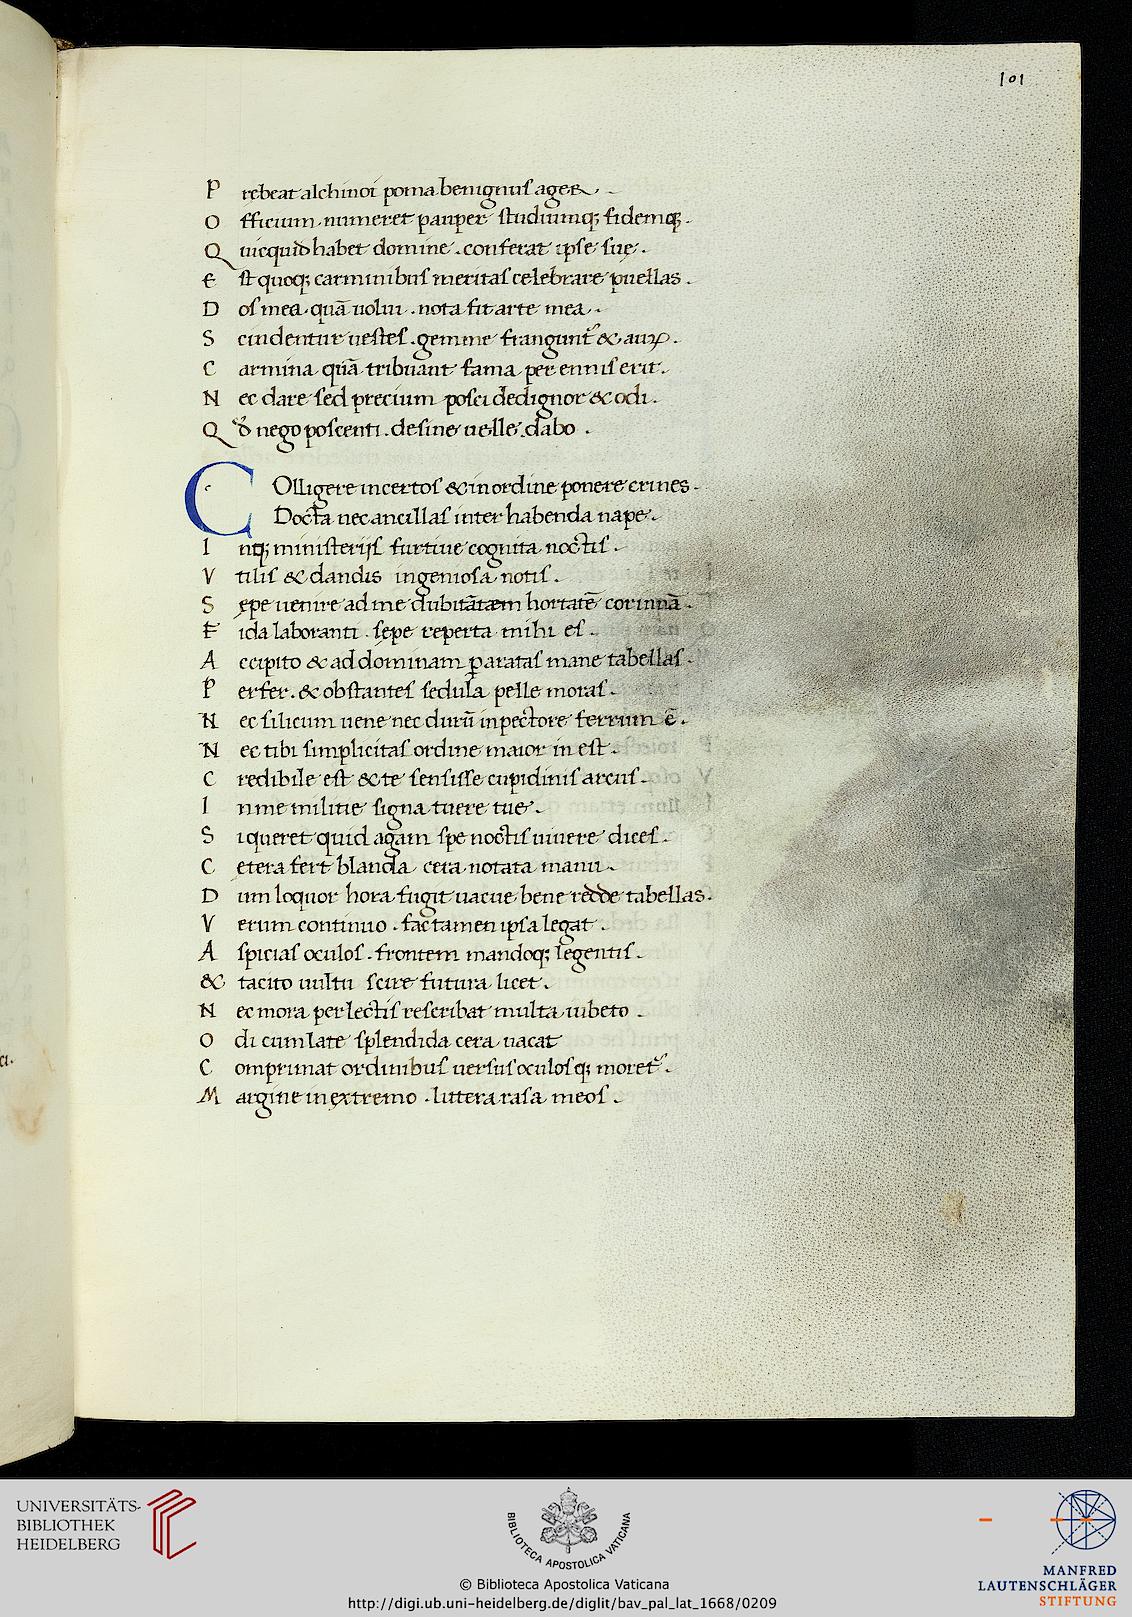 101
P rebeat alchinoi poma benignus ager.
O fficium numeret pauper studiumq; fidemq;.
Q uicquid habet domine. conferat ipse suę.
E st quoq; carminibus meritas celebrare puellas.
D os mea. quā uolui. nota fit arte mea.
S cindentur uestes. gemme frangunt᷑ & auꝝ.
C armina quā tribuant fama per ennis erit.
N ec dare sed precium posci dedignor & odi.
Q ď nego poscenti. desine uelle. dabo.
C Olligere incertos & in ordine ponere crines.
Docta nec ancillas inter habenda nape.
I nq; ministerijs furtiue cognita noctis.
V tilis & dandis ingeniosa notis.
S ępe uenire ad me dubitātem hortatē corinnā.
F ida laboranti. sępe reperta mihi es.
A ccipito & ad dominam ꝑaratas mane tabellas.
P erfer. & obstantes sedula pelle moras.
N ec silicum uene nec durū in pectore ferrum ē.
N ec tibi simplicitas ordine maior in est.
C redibile est & te sensisse cupidinis arcus.
I n me militie signa tuere tue.
S i queret quid agam spe noctis uiuere dices.
C etera fert blanda cera notata manu.
D um loquor hora fugit uacue bene redde tabellas.
V erum continuo. fac tamen ipsa legat.
A spicias oculos. frontem mandoq; legentis.
& tacito uultu scire futura licet.
N ec mora perlectis rescribat multa iubeto.
O di cum late splendida cera uacat
C omprimat ordinibus uersus oculosq; moret᷑.
M argine in extremo. littera rasa meos.
ci.
UNIVERSITÄTS-
BIBLIOTHEK
HEIDELBERG
BIBLIOTECA APOSTOLICA VATICANA
MANFRED
LAUTENSCHLÄGER
STIFTUNG
© Biblioteca Apostolica Vaticana
http://digi.ub.uni-heidelberg.de/diglit/bav_pal_lat_1668/0209